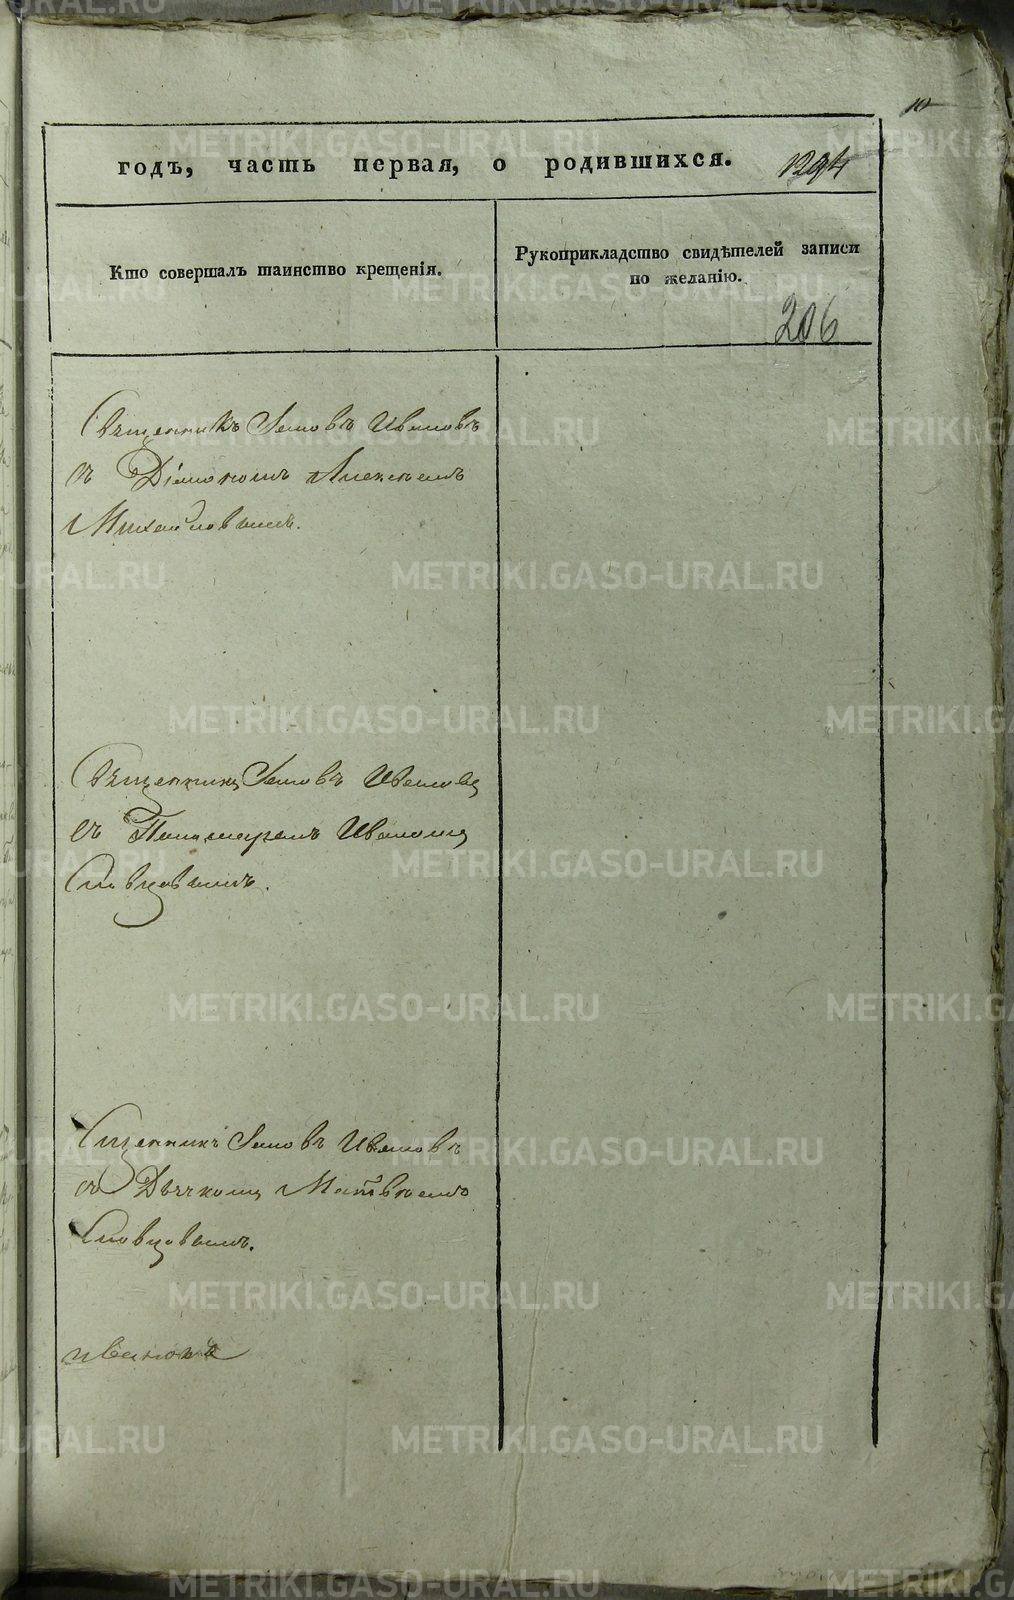 10
годъ, часть первая, о родившихся. 1294
Кто совершалъ таинство крещенія.
Рукоприкладство свидѣтелей записи
по желанію.
206
Священникъ Іаковъ Ивановъ
съ Діакономъ Алексѣемъ
Михайловымъ.
Священникъ Іаковъ Ивановъ
съ Пономаремъ Иваномъ
Словцовымъ.
Сщенникъ Іаковъ Ивановъ
съ Дьячкомъ Матвѣемъ
Словцовымъ.
ивановъ
METRIKI.GASO-URAL.RU